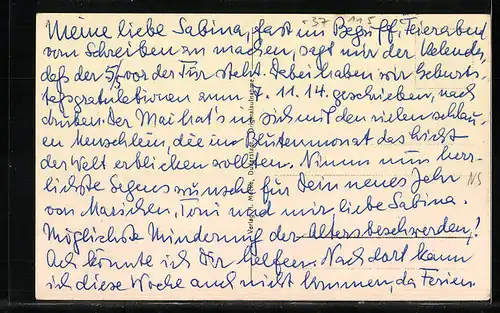 Meine liebe Sabina, fast im Begriff, Feierabend
vom Schreiben zu machen, sagt mir der Kalender,
daß der 5/5 vor der Tür steht. Dabei haben wir Geburts-
tagsgratulationen zum 7. 11. 14. geschrieben, nach
drüben. Der Mai hat's in sich mit den vielen schlau-
en Menschlein, die im Blütenmonat das Licht
der Welt erblicken sollten. Nimm nun herz-
lichste Segenswünsche für Dein neues Jahr
von Mariechen, Toni und mir, liebe Sabina.
Möglichste Minderung der Altersbeschwerden!
Ach könnte ich Dir helfen. Nach dort kann
ich diese Woche auch nicht kommen, da Ferien.